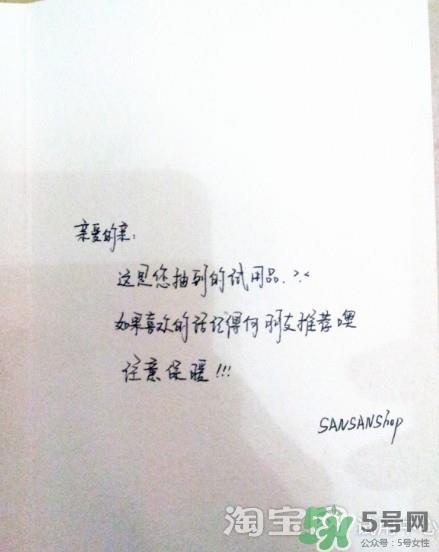 亲爱的亲:
这是您抽到的试用品. >.<
如果喜欢的话记得向朋友推荐噢
注意保暖!!!
SANSANShop
淘宝
5号网
公众号：5号女性